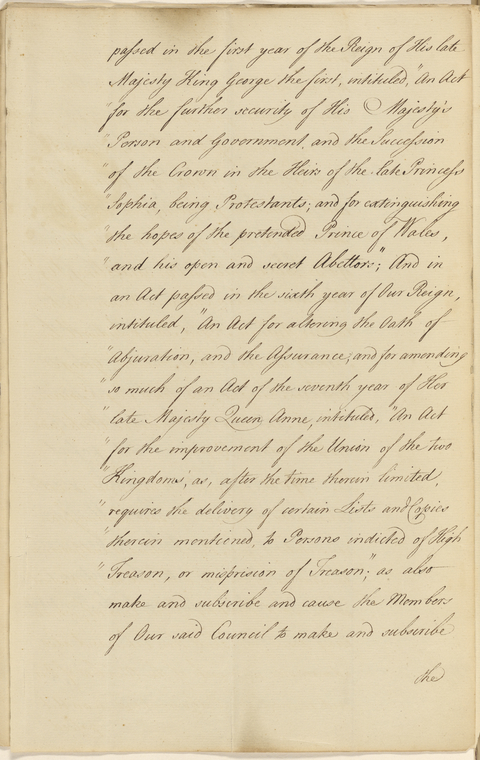 passed in the first year of the Reign of His late
Majesty King George the first, intituled, "An Act
" for the further security of His Majesty's
" Person and Government, and the Succession
" of the Crown in the Heirs of the late Princess
" Sophia, being Protestants; and for extinguishing
" the hopes of the pretended Prince of Wales,
" and his open and secret Abettors;" And in
an Act passed in the sixth year of Our Reign,
intituled, "An Act for altering the Oath of
" Abjuration, and the Assurance; and for amending
" so much of an Act of the seventh year of Her
" late Majesty Queen Anne, intituled, "An Act
" for the improvement of the Union of the two
" Kingdoms, as, after the time therein limited,
" requires the delivery of certain Lists and Copies
" therein mentioned, to Persons indicted of High
" Treason, or misprision of Treason"; as also
make and subscribe and cause the Members
of Our said Council to make and subscribe
the